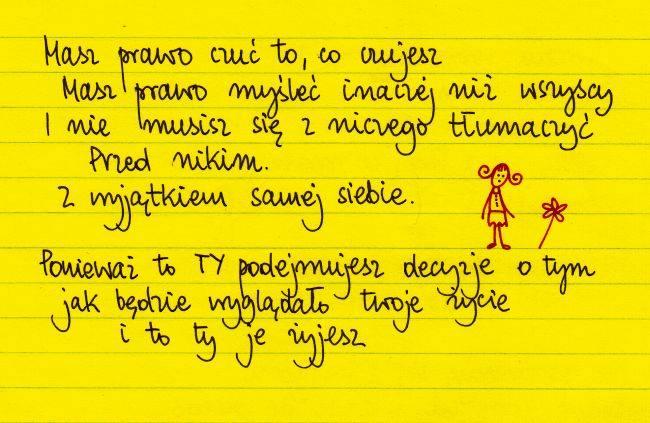 Masz prawo czuć to, co czujesz
Masz prawo myśleć inaczej niż wszyscy
I nie musisz się z niczego tłumaczyć
Przed nikim.
Z wyjątkiem samej siebie.
Ponieważ to TY podejmujesz decyzje o tym
jak będzie wyglądało twoje życie
i to ty je żyjesz